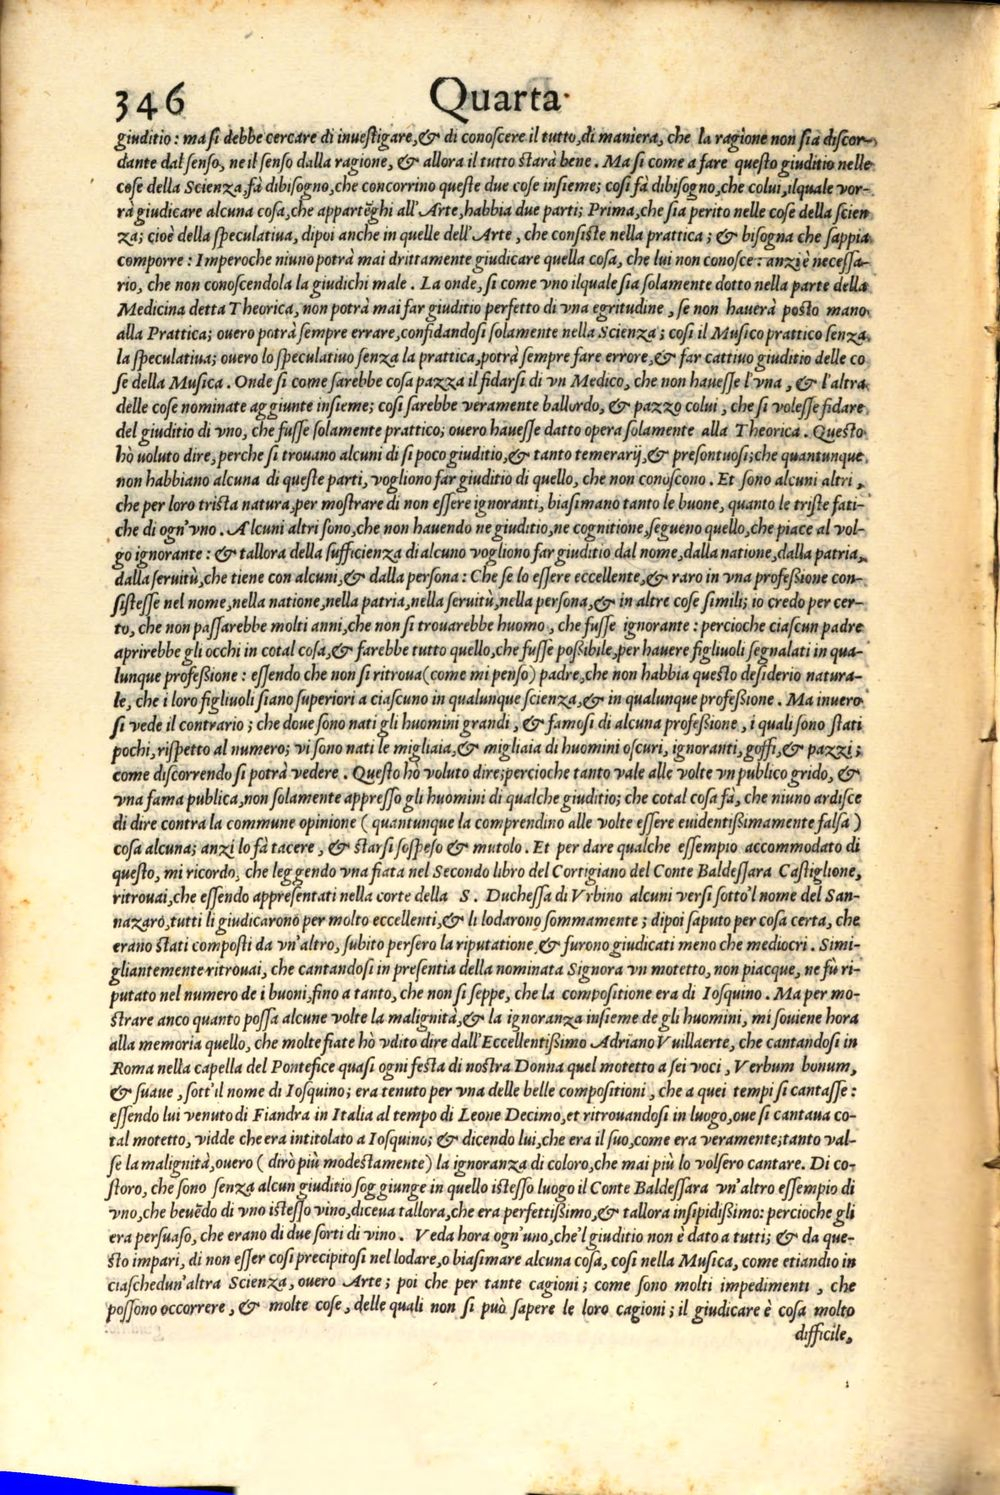 346 Quarta
giuditio: ma si debbe cercare di inuestigare,& di conoscere il tutto,di maniera, che la ragione non sia discor-
dante dal senso, ne il senso dalla ragione, & allora il tutto starà bene. Ma si come a fare questo giuditio nelle
cose della Scienza,fà dibisogno,che concorrino queste due cose insieme; cosi fà dibisogno,che colui,ilquale vor-
rà giudicare alcuna cosa,che appartẽghi all'Arte,habbia due parti; Prima,che sia perito nelle cose della scien
za; cioè della speculatiua, dipoi anche in quelle dell'Arte, che consiste nella prattica; & bisogna che sappia
comporre: Imperoche niuno potrà mai drittamente giudicare quella cosa, che lui non conosce: anzi è necessa-
rio, che non conoscendola la giudichi male. La onde, si come vno ilquale sia solamente dotto nella parte della
Medicina detta Theorica, non potrà mai far giuditio perfetto di vna egritudine, se non hauerà posto mano
alla Prattica; ouero potrà sempre errare,confidandosi solamente nella Scienza; cosi il Musico prattico senza
la speculatiua; ouero lo speculatiuo senza la prattica,potrà sempre fare errore,& far cattiuo giuditio delle co
se della Musica. Onde si come sarebbe cosa pazza il fidarsi di vn Medico, che non hauesse l'vna, & l'altra
delle cose nominate aggiunte insieme; cosi sarebbe veramente balordo, & pazzo colui, che si volesse fidare
del giuditio di vno, che fusse solamente prattico; ouero hauesse datto opera solamente alla Theorica. Questo
hò voluto dire, perche si trouano alcuni di si poco giuditio,& tanto temerarij,& presontuosi;che quantunque
non habbiano alcuna di queste parti, vogliono far giuditio di quello, che non conoscono. Et sono alcuni altri,
che per loro trista natura,per mostrare di non essere ignoranti, biasimano tanto le buone, quanto le triste fati-
che di ogn'vno. Alcuni altri sono,che non hauendo ne giuditio,ne cognitione,segueno quello,che piace al vol-
go ignorante: & tallora della sufficienza di alcuno vogliono far giuditio dal nome,dalla natione,dalla patria,
dalla seruitù,che tiene con alcuni,& dalla persona: Che se lo essere eccellente,& raro in vna professione con-
sistesse nel nome,nella natione,nella patria,nella seruitù,nella persona,& in altre cose simili; io credo per cer-
to, che non passarebbe molti anni,che non si trouarebbe huomo, che fusse ignorante: percioche ciascun padre
aprirebbe gli occhi in cotal cosa,& farebbe tutto quello,che fusse possibile,per hauere figliuoli segnalati in qua-
lunque professione: essendo che non si ritroua(come mi penso) padre,che non habbia questo desiderio natura-
le, che i loro figliuoli siano superiori a ciascuno in qualunque scienza,& in qualunque professione. Ma inuero
si vede il contrario; che doue sono nati gli huomini grandi, & famosi di alcuna professione, i quali sono stati
pochi,rispetto al numero; vi sono nati le migliaia,& migliaia di huomini oscuri, ignoranti, goffi,& pazzi;
come discorrendo si potrà vedere. Questo hò voluto dire;percioche tanto vale alle volte vn publico grido, &
vna fama publica,non solamente appresso gli huomini di qualche giuditio; che cotal cosa fà, che niuno ardisce
di dire contra la commune opinione (quantunque la comprendino alle volte essere euidentissimamente falsa)
cosa alcuna; anzi lo fà tacere, & starsi sospeso & mutolo. Et per dare qualche essempio accommodato di
questo, mi ricordo, che leggendo vna fiata nel Secondo libro del Cortigiano del Conte Baldessara Castiglione,
ritrouai,che essendo appresentati nella corte della S. Duchessa di Vrbino alcuni versi sotto'l nome del San-
nazaro,tutti li giudicarono per molto eccellenti,& li lodarono sommamente; dipoi saputo per cosa certa, che
erano stati composti da vn'altro, subito persero la riputatione,& furono giudicati meno che mediocri. Simi-
gliantemente ritrouai, che cantandosi in presentia della nominata Signora vn motetto, non piacque, ne fù ri-
putato nel numero de i buoni,fino a tanto, che non si seppe, che la compositione era di Iosquino. Ma per mo-
strare anco quanto possa alcune volte la malignità,& la ignoranza insieme de gli huomini, mi souiene hora
alla memoria quello, che molte fiate hò vdito dire dall'Eccellentissimo Adriano Vuillaerte, che cantandosi in
Roma nella capella del Pontefice quasi ogni festa di nostra Donna quel motetto a sei voci, Verbum bonum,
& suaue, sott'il nome di Iosquino; era tenuto per vna delle belle compositioni, che a quei tempi si cantasse:
essendo lui venuto di Fiandra in Italia al tempo di Leone Decimo,et ritrouandosi in luogo,oue si cantaua co-
tal motetto, vidde che era intitolato a Iosquino; & dicendo lui,che era il suo,come era veramente;tanto val-
se la malignità,ouero (dirò più modestamente) la ignoranza di coloro,che mai più lo volsero cantare. Di co-
storo, che sono senza alcun giuditio soggiunge in quello istesso luogo il Conte Baldessara vn'altro essempio di
vno,che beuẽdo di vno istesso vino,diceua tallora,che era perfettissimo,& tallora insipidissimo: percioche gli
era persuaso, che erano di due sorti di vino. Veda hora ogn'uno,che'l giuditio non è dato a tutti; & da que-
sto impari, di non esser cosi precipitosi nel lodare,o biasimare alcuna cosa, cosi nella Musica, come etiandio in
ciaschedun'altra Scienza, ouero Arte; poi che per tante cagioni; come sono molti impedimenti, che
possono occorrere, & molte cose, delle quali non si può sapere le loro cagioni; il giudicare è cosa molto
difficile,